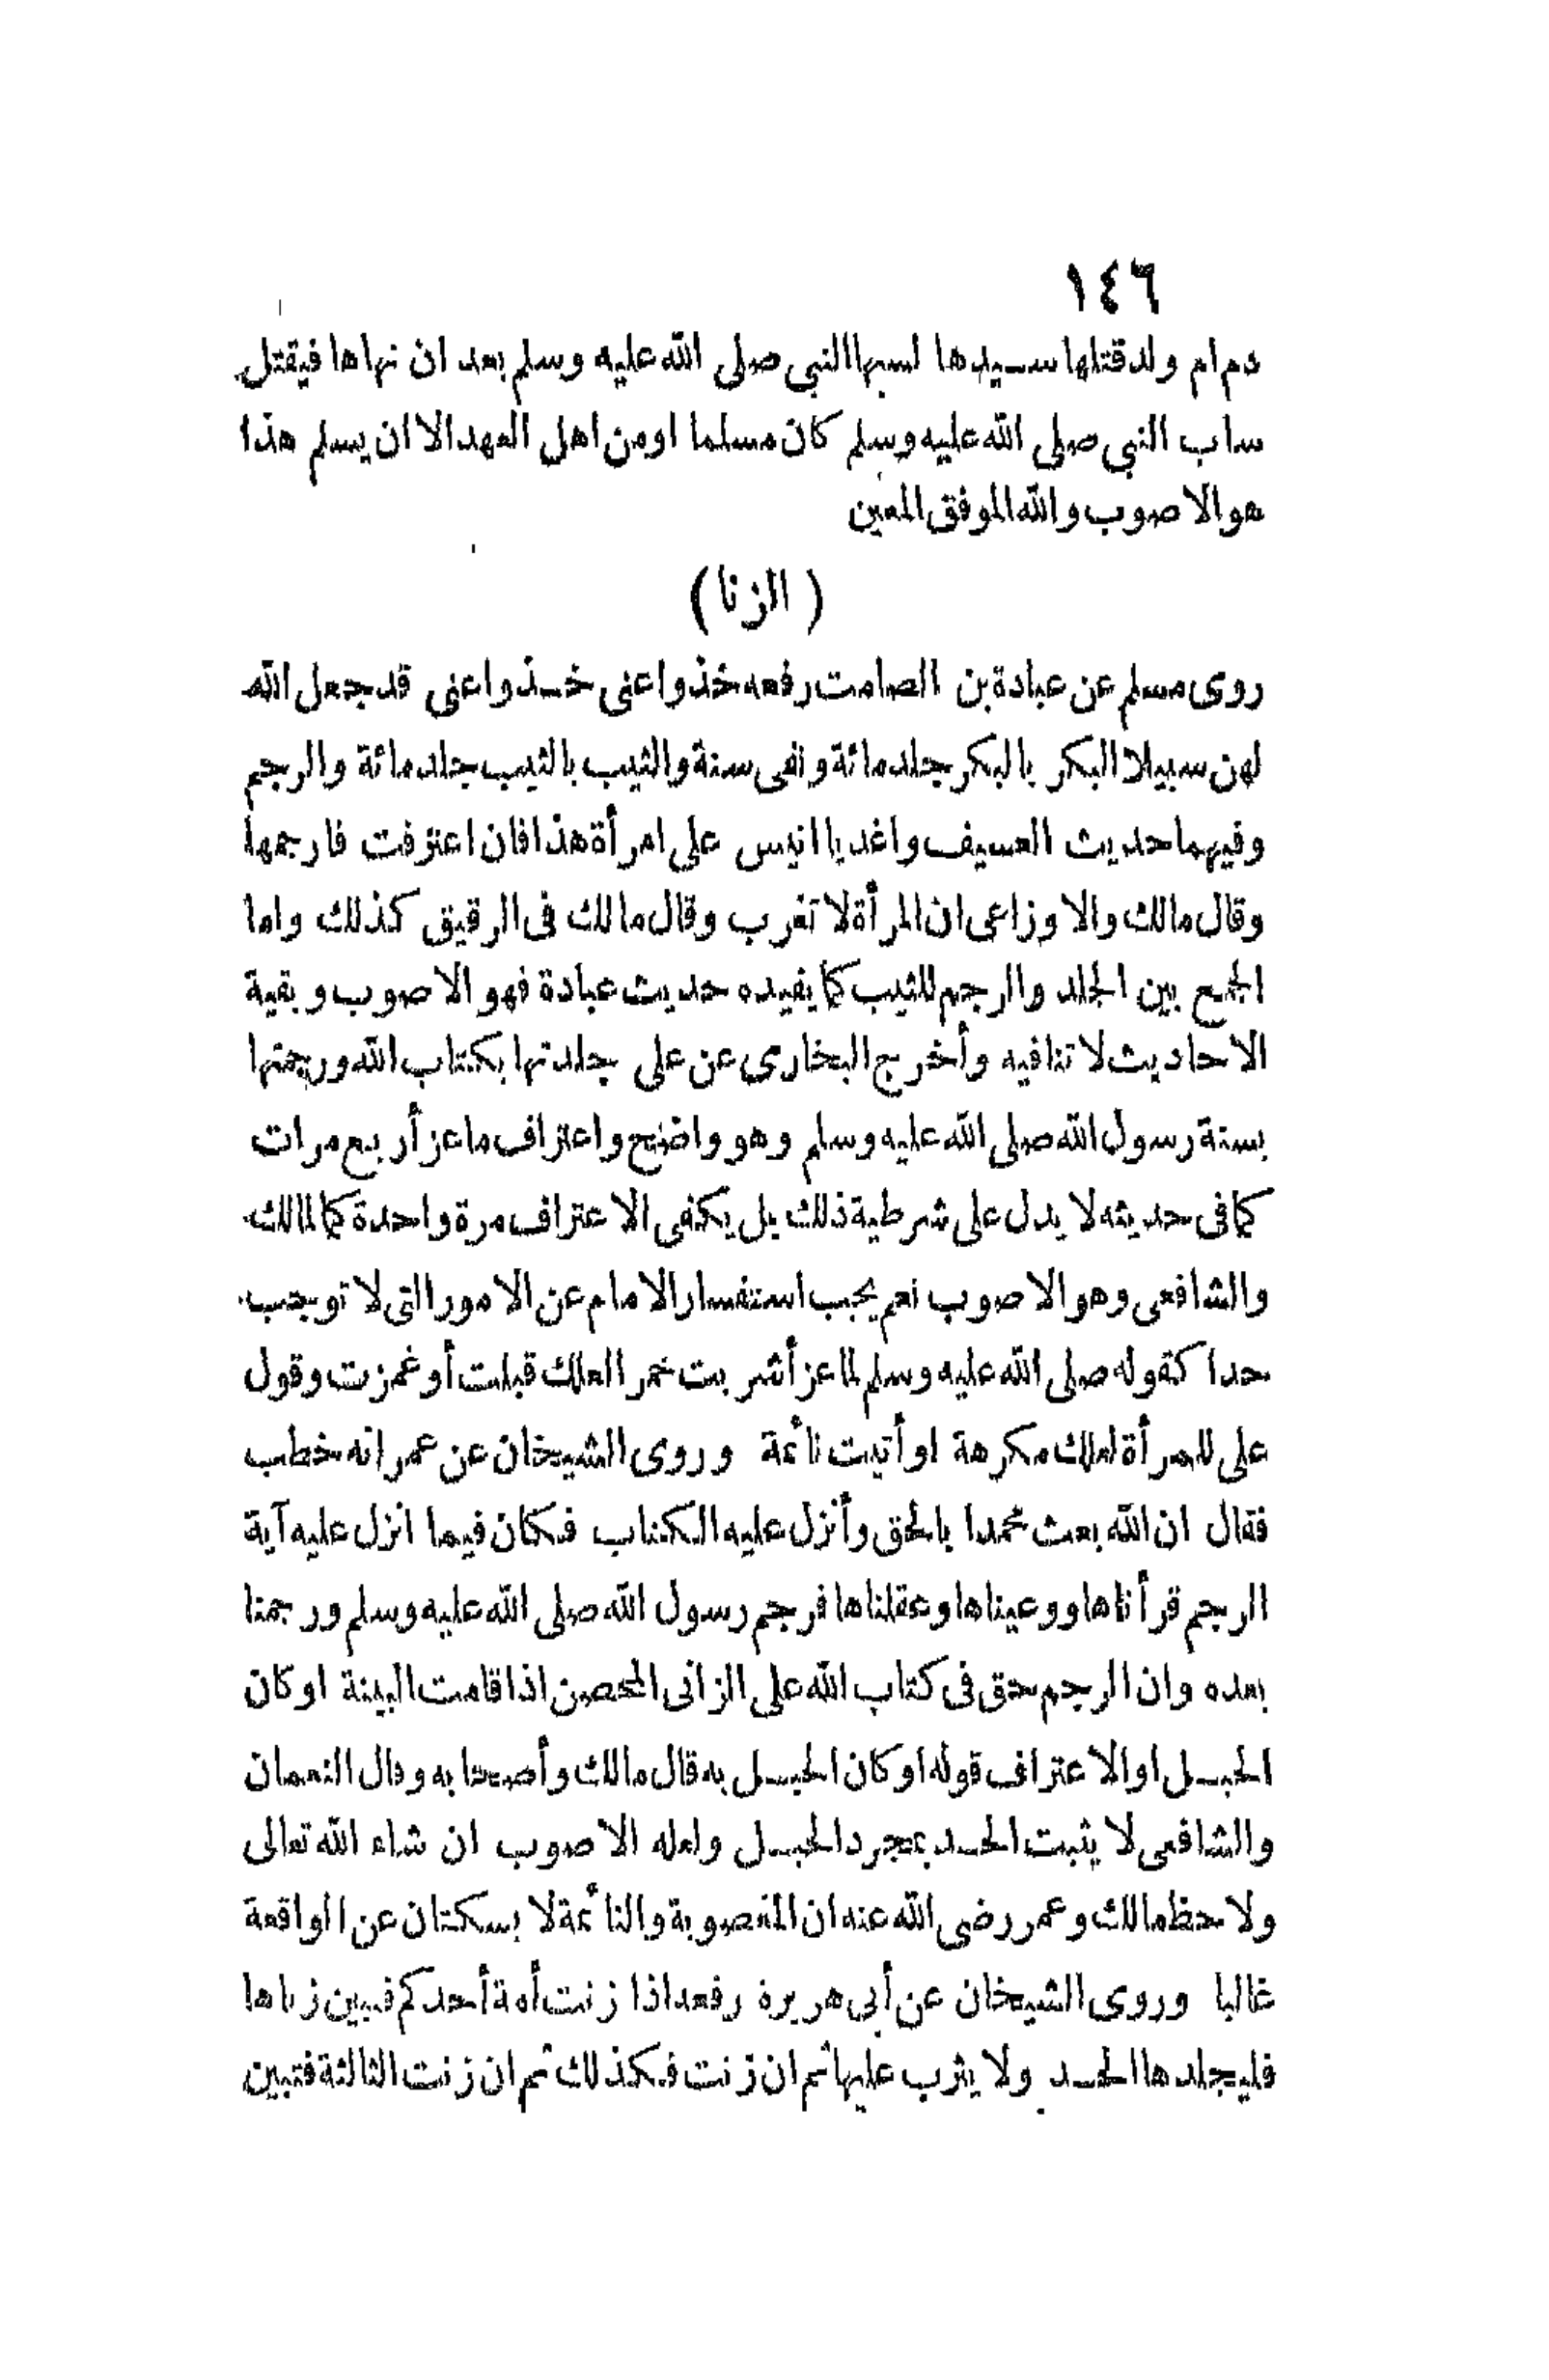 ١٤٦
دم ام ولد قتلها سيدها لسبها النبي صلى الله عليه وسلم بعد ان نهاها فيقتل
ساب النبي صلى الله عليه وسلم كان مسلما او من اهل العهد الا ان يسلم هذا
هو الاصوب والله الموفق المعين
( الزنا )
روى مسلم عن عبادة بن الصامت رفعه خذوا عنى خذوا عنى قد جعل الله
لهن سبيلا البكر بالبكر جلد مائة ونفى سنة والثيب بالثيب جلد مائة والرجم
وفيهما حديث العسيف واغد يا انيس على امرأة هذا فان اعترفت فارجمها
وقال مالك والاوزاعى ان المرأة لا تغرب وقال مالك فى الرقيق كذلك واما
الجمع بين الجلد والرجم للثيب كما يفيده حديث عبادة فهو الاصوب وبقية
الاحاديث لا تنافيه وأخرج البخارى عن على جلدتها بكتاب الله ورجمتها
بسنة رسول الله صلى الله عليه وسلم وهو واضح واعتراف ماعز أربع مرات
كما فى حديثه لا يدل على شرطية ذلك بل يكفى الاعتراف مرة واحدة كما لمالك
والشافعى وهو الاصوب نعم يجب استفسار الامام عن الامور التى لا توجب
حدا كقوله صلى الله عليه وسلم لماعز أشربت خمر العلك قبلت أو غمزت وقول
على للمرأة لعلك مكرهة او أتيت نائمة وروى الشيخان عن عمر انه خطب
فقال ان الله بعث محمدا بالحق وأنزل عليه الكتاب فكان فيما انزل عليه آية
الرجم قرأناها ووعيناها وعقلناها فرجم رسول الله صلى الله عليه وسلم ورجمنا
بعده وان الرجم حق فى كتاب الله على الزانى المحصن اذا قامت البينة او كان
الحبل او الاعتراف قوله او كان الحبل به قال مالك وأصحابه وقال النعمان
والشافعى لا يثبت الحد بمجرد الحبل ولعله الاصوب ان شاء الله تعالى
ولاحظ مالك وعمر رضى الله عنه ان المغصوبة والنائمة لا يسكتان عن الواقعة
غالبا وروى الشيخان عن أبى هريرة رفعه اذا زنت أمة أحدكم فتبين زناها
فليجلدها الحد ولا يثرب عليها ثم ان زنت فكذلك ثم ان زنت الثالثة فتبين